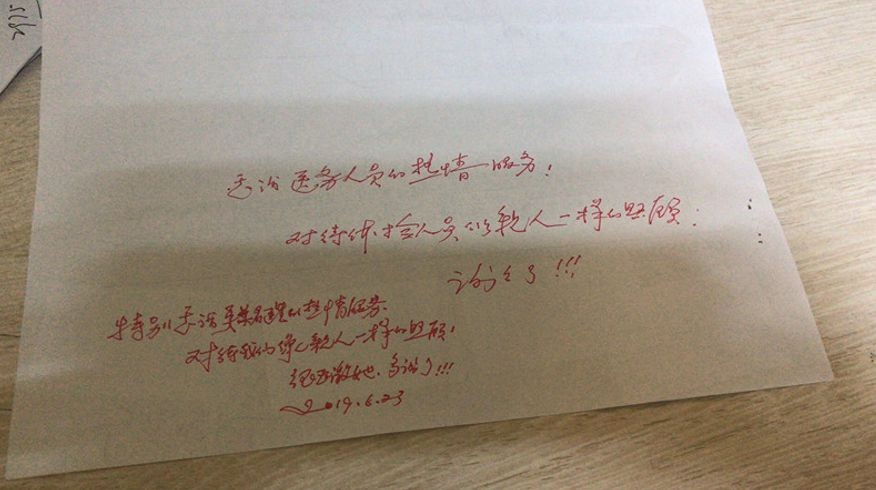 感谢医务人员的热情服务!
对待体检人员像亲人一样的照顾:
谢谢了!!!
特别感谢 的热情服务.
对待我们像亲人一样的照顾!
感激她.多谢了!!!
2019.6.23